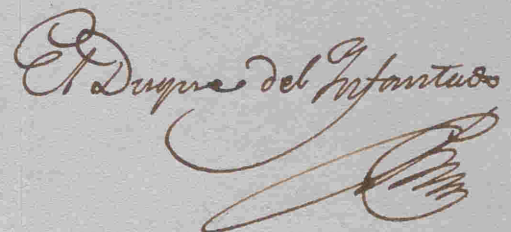 El Duque del Infantado